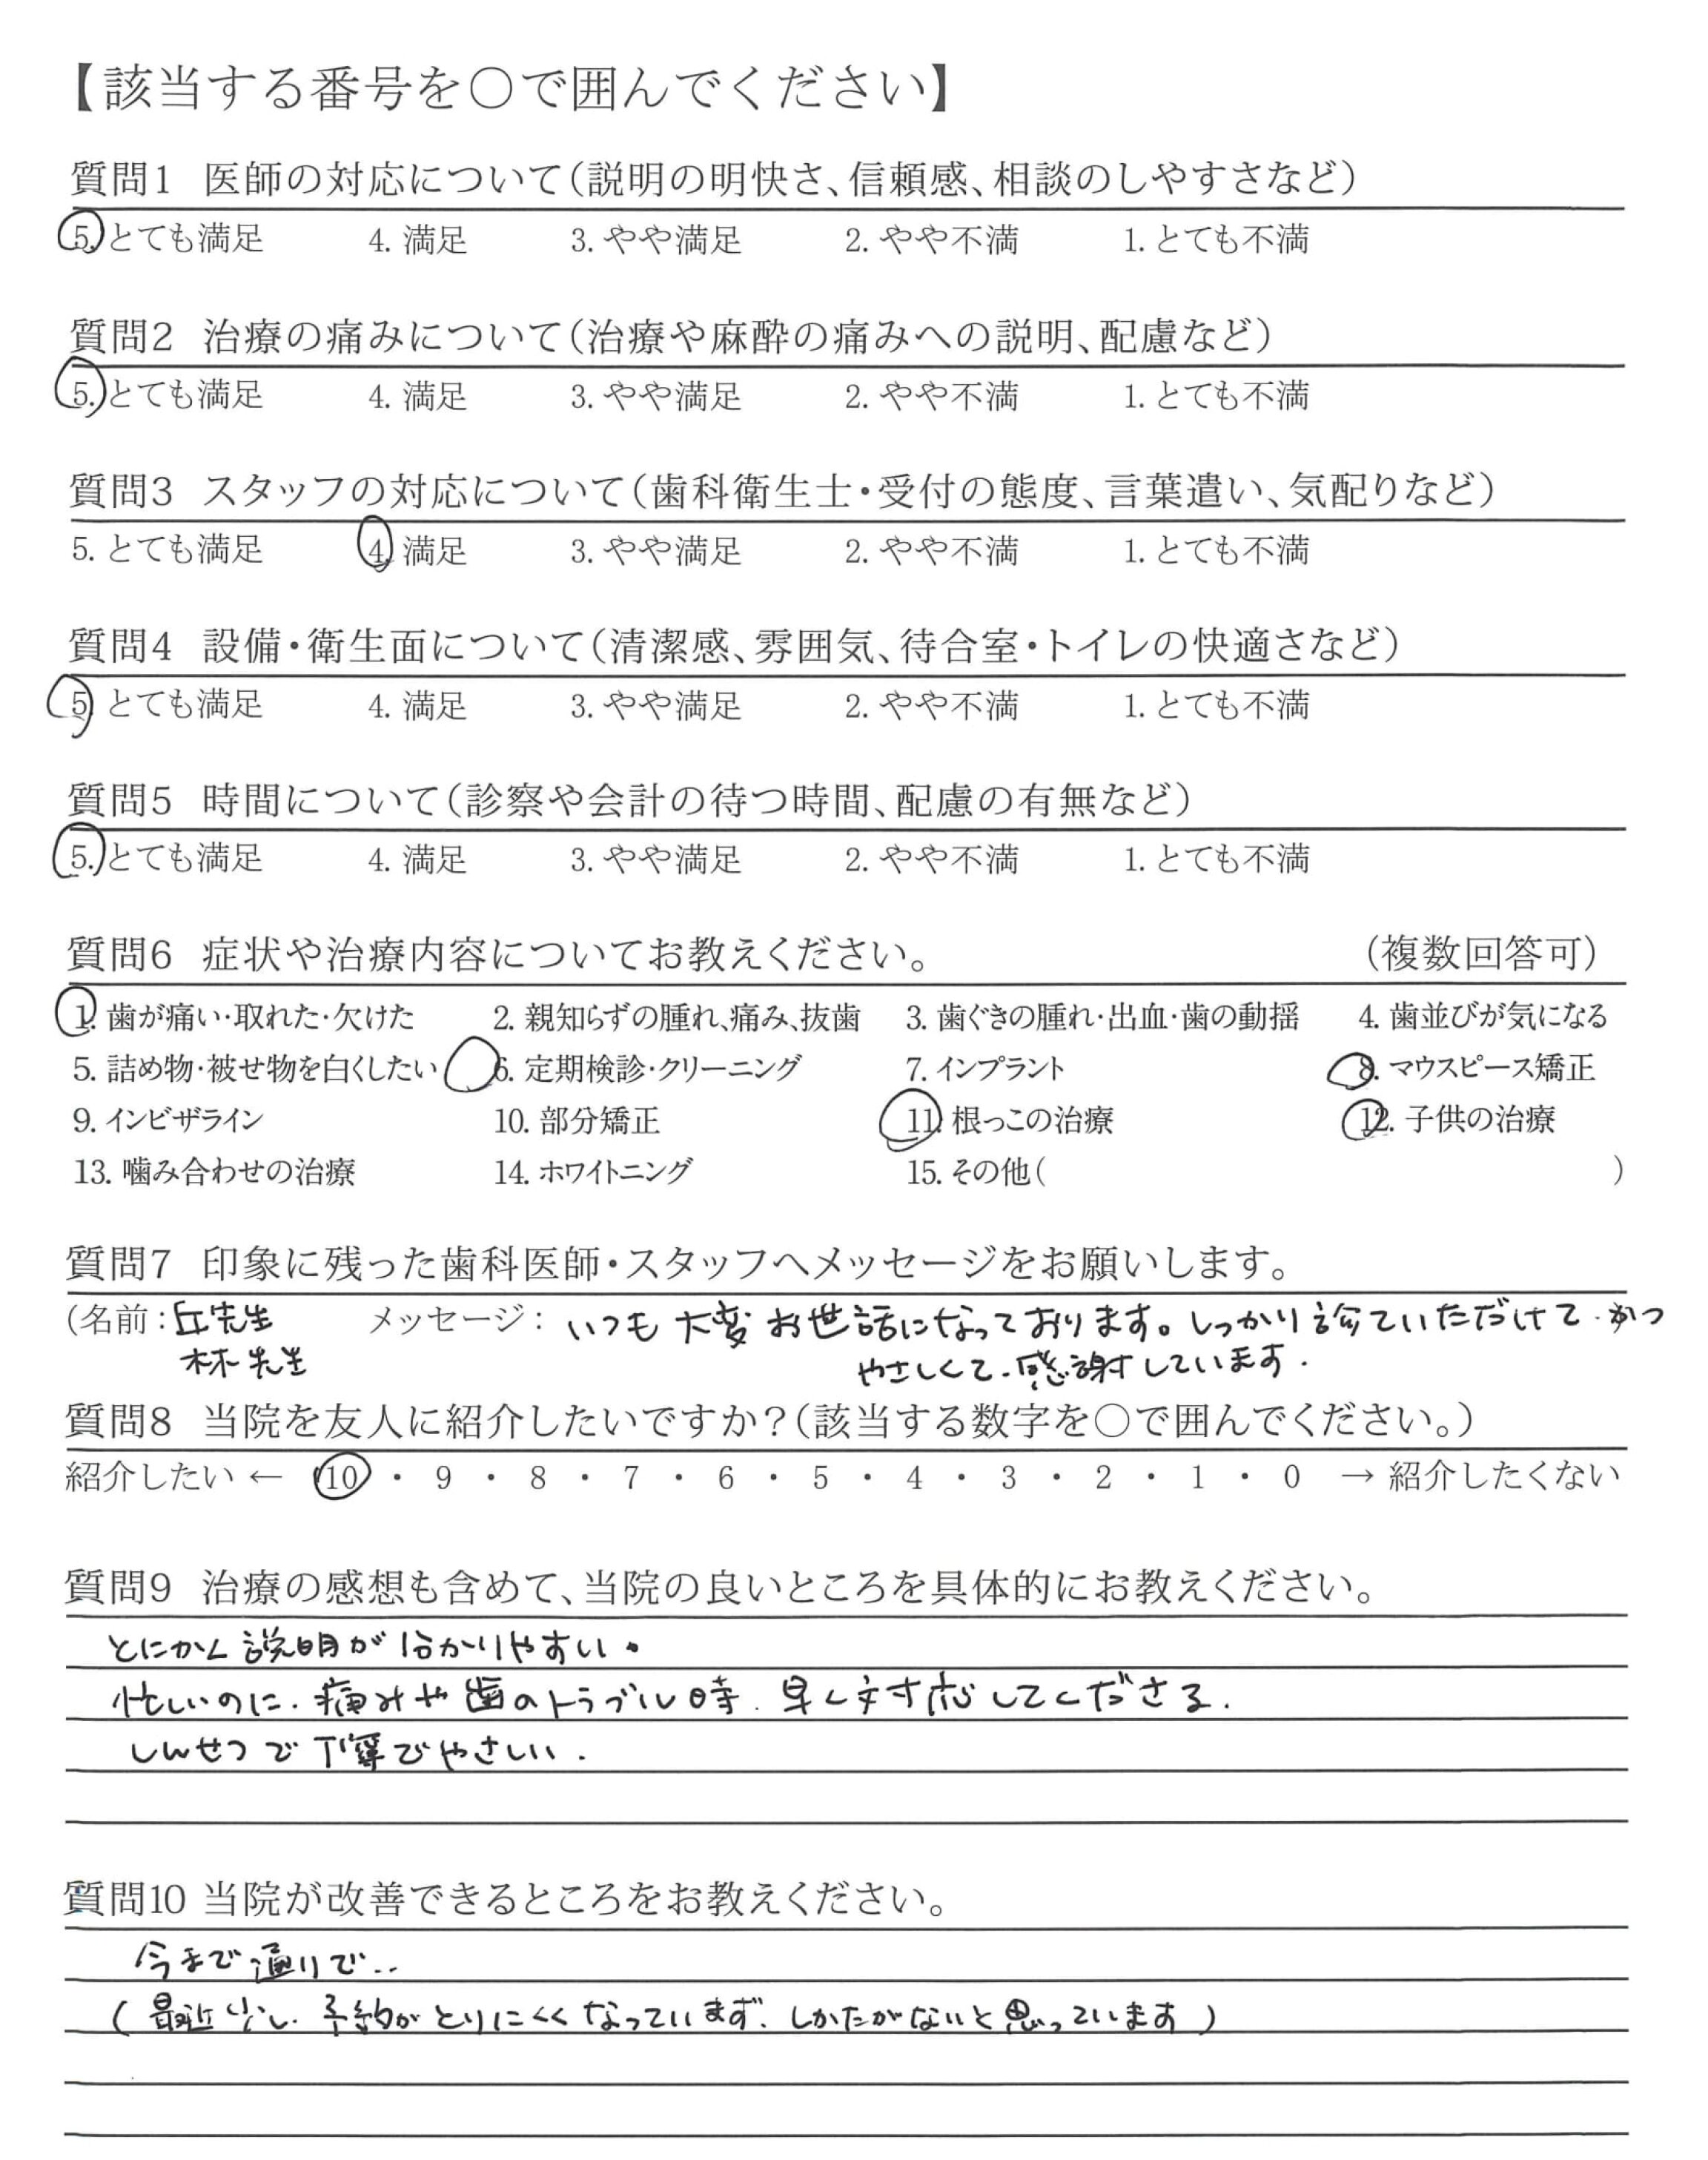 【該当する番号を○で囲んでください】
質問1 医師の対応について(説明の明快さ、信頼感、相談のしやすさなど)
5. とても満足 4. 満足 3. やや満足 2. やや不満 1. とても不満
質問2 治療の痛みについて(治療や麻酔の痛みへの説明、配慮など)
5. とても満足 4. 満足 3. やや満足 2. やや不満 1. とても不満
質問3 スタッフの対応について(歯科衛生士・受付の態度、言葉遣い、気配りなど)
5. とても満足 4. 満足 3. やや満足 2. やや不満 1. とても不満
質問4 設備・衛生面について(清潔感、雰囲気、待合室・トイレの快適さなど)
5. とても満足 4. 満足 3. やや満足 2. やや不満 1. とても不満
質問5 時間について(診察や会計の待つ時間、配慮の有無など)
5. とても満足 4. 満足 3. やや満足 2. やや不満 1. とても不満
質問6 症状や治療内容についてお教えください。 (複数回答可)
1. 歯が痛い・取れた・欠けた 2. 親知らずの腫れ、痛み、抜歯 3. 歯ぐきの腫れ・出血・歯の動揺 4. 歯並びが気になる
5. 詰め物・被せ物を白くしたい 6. 定期検診・クリーニング 7. インプラント 8. マウスピース矯正
9. インビザライン 10. 部分矯正 11. 根っこの治療 12. 子供の治療
13. 噛み合わせの治療 14. ホワイトニング 15. その他( )
質問7 印象に残った歯科医師・スタッフへメッセージをお願いします。
(名前:丘先生 メッセージ: いつも大変お世話になっております。しっかり診ていただけて、かつ
林先生 やさしくて、感謝しています.
質問8 当院を友人に紹介したいですか?(該当する数字を○で囲んでください。)
紹介したい ← 10 ・ 9 ・ 8 ・ 7 ・ 6 ・ 5 ・ 4 ・ 3 ・ 2 ・ 1 ・ 0 → 紹介したくない
質問9 治療の感想も含めて、当院の良いところを具体的にお教えください。
とにかく説明が分かりやすい。
忙しいのに、痛みや歯のトラブル時、早く対応してくださる.
しんせつで丁寧でやさしい.
質問10 当院が改善できるところをお教えください。
今まで通りで..
(最近少し、予約がとりにくくなっていますが、しかたがないと思っています)